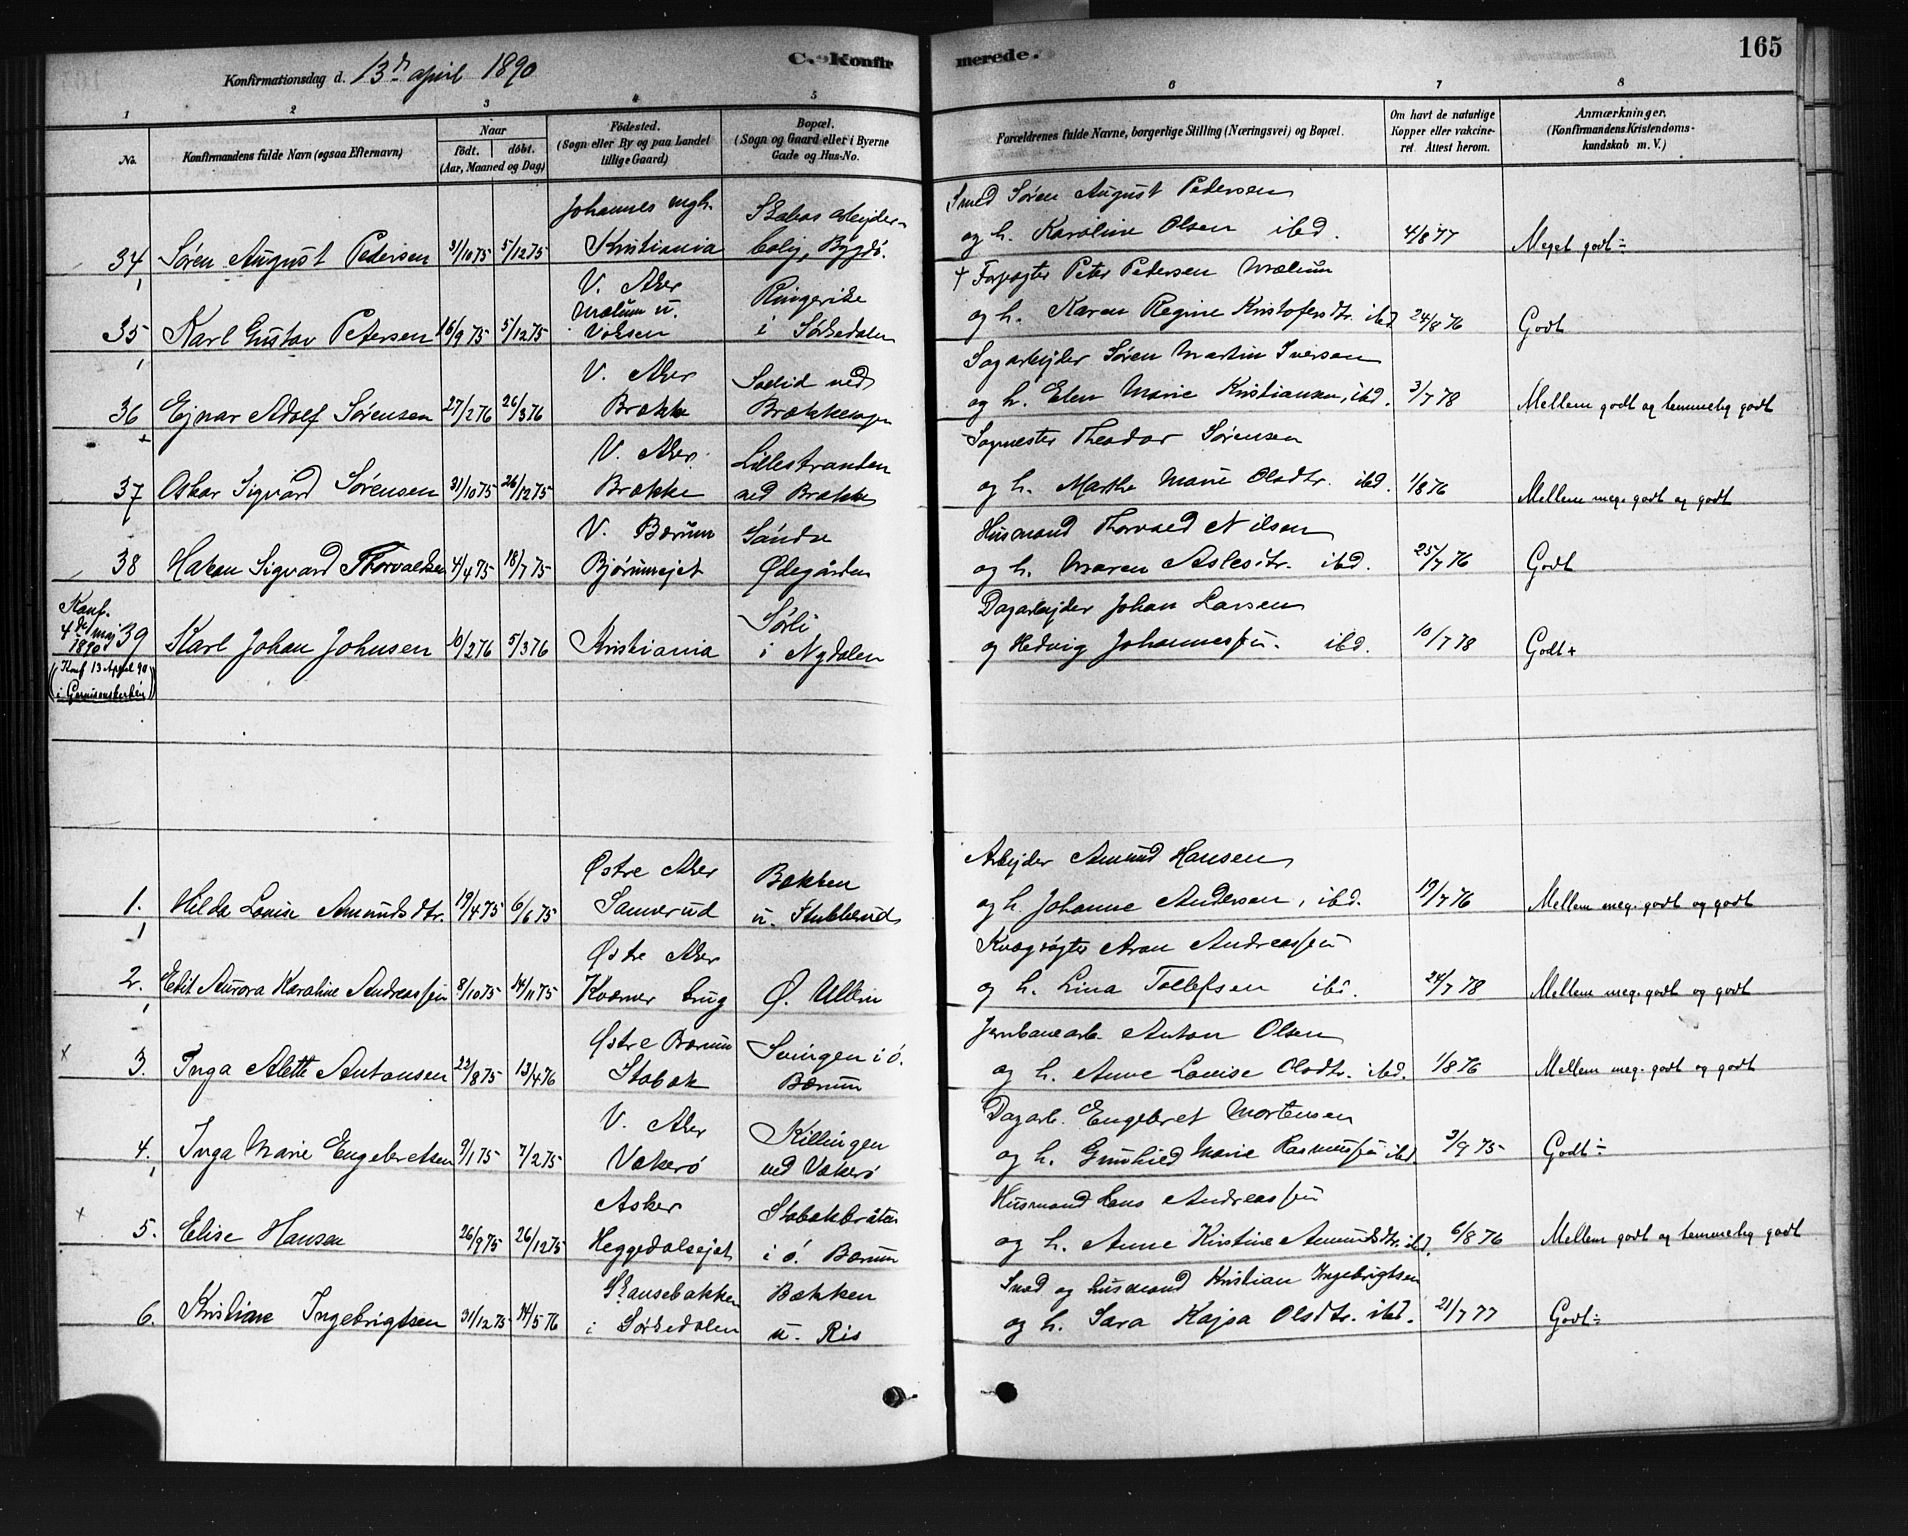 Konfirmationsdag d. 13de april 1890
C. Konfirmerede.
165
1 2 3 4 5 6 7 8
No.
Konfirmandens fulde Navn (ogsaa Efternavn)
Naar
født. døbt.
(Aar, Maaned og Dag)
Fødested.
(Sogn eller By og paa Landet
tillige Gaard)
Bopæl.
(Sogn og Gaard eller i Byerne
Gade og Hus-No.
Forældrenes fulde Navne, borgerlige Stilling (Næringsvei) og Bopæl.
Om havt de naturlige
Kopper eller vakcine-
ret. Attest herom.
Anmærkninger.
(Konfirmandens Kristendoms-
kundskab m. V.)
Johannes mgh. Skabos arbejder- Smed Søren August Pedersen
34 Søren August Pedersen 31/10 75 5/12 75 Kristiania bolig, Bygdø. og h. Karoline Olsen ibd. 4/8 77 Meget godt ÷
V. Aker Ringerike + Forpagter Peter Pedersen Mælum
Mælum u.
35 Karl Gustav Petersen 16/9 75 5/12 75 Voksen i Sørkedalen og h. Karen Regine Kristofersdtr. ibd 24/8 76 Godt
V. Aker Solid ved Sagarbejder Søren Martin Iversen
36 Ejnar Adolf Sørensen 27/2 76 26/3 76 Brække Brækkesagen og h. Elen Marie Kristiansen, ibd. 3/7 78 Mellem godt og temmelig godt
V. Aker Lillestranden Sagmester Theodor Sørensen
37 Oskar Sigvard Sørensen 31/10 75 26/12 75 Brække ved Brække og h. Marthe Marie Olsdtr. ibd. 1/8 76 Mellem meg. godt og godt
V. Bærum Søndre Husmand Thorvald Nilsen
38 Hakon Sigvard Thorvaldsen 4/4 75 18/7 75 Bjørumsejet Ødegården og h. Maren Aslesdtr. ibd. 25/7 76 Godt
Konf. 4de maj 1890
Sørli Dagarbejder Johan Larsen
39 Karl Johan Johnsen 10/2 76 5/3 76 Kristiania i Nydalen og Hedvig Johannessen. ibd. 10/7 78 Godt +
(Konf 13 April 90
i Garnisonskirken)
Østre Aker Bakken Arbejder Amund Hansen
1. Hilda Louise Amundsdtr. 19/4 75 6/6 75 Sanerud u. Stubberud og h. Johanne Andersen, ibd. 19/7 76 Mellem meg. godt og godt
Østre Aker Kvægrøgter Aron Andreassen
2. Edit Aurora Karoline Andreassen 8/10 75 14/11 75 Kværner brug Ø. Ullern og h. Lina Tollefsen ibd. 24/7 78 Mellem meg. godt og godt
Østre Bærum Svingen i ø. Jernbanearb. Anton Olsen
x 3. Inga Alette Antonsen 23/8 75 13/4 76 Stabæk Bærum og h. Anne Louise Olsdtr. ibd. 1/8 76 Mellem meg. godt og godt
V. Aker Killingen Dagarb. Engebret Mortensen
4. Inga Marie Engebretsen 9/1 75 7/2 75 Vækerø ved Vækerø og h. Gunhild Marie Rasmussen ibd. 3/9 75 Godt ÷
Asker Stabækbråten Husmand Hans Andreassen
x 5. Elise Hansen 26/9 75 26/12 75 Heggedalsejet i ø. Bærum og h. Anne Kirstine Amundsdtr. ibd. 6/8 76 Mellem godt og temmelig godt
Skansebakken Bækken Smed og husmand Kristian Ingebrigtsen
6. Kristiane Ingebrigtsen 31/12 75 14/5 76 i Sørkedalen u. Ris og h. Sara Kajsa Olsdtr. ibd. 21/7 77 Godt ÷